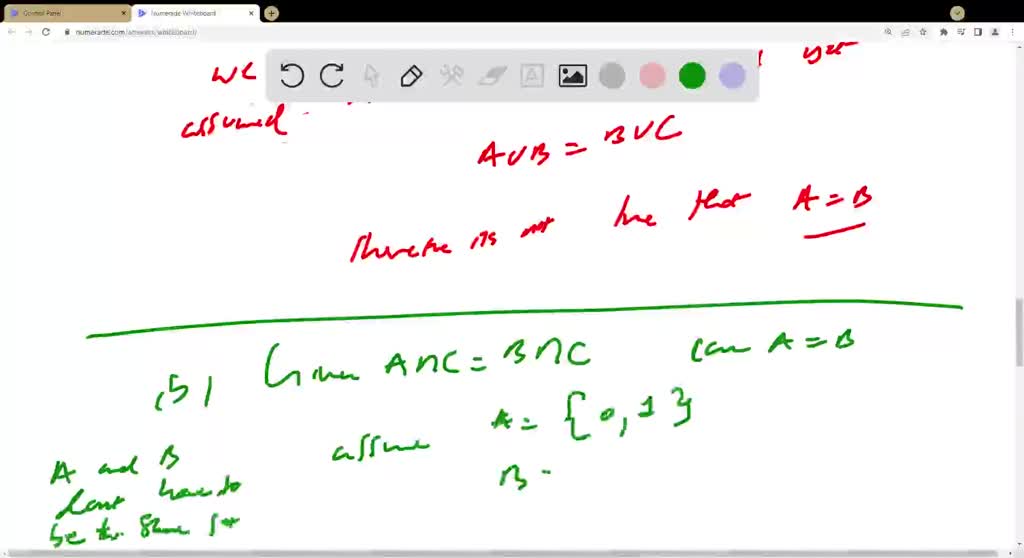 Control Panel
Numerade Whiteboard
numerade.com/answers/whiteboard/
we yet
assumed
A∪B = B∪C
its not true that A = B
(b) Given A∩C = B∩C can A = B
assume A = {0, 1}
B
A and B
dont have to
be the same set